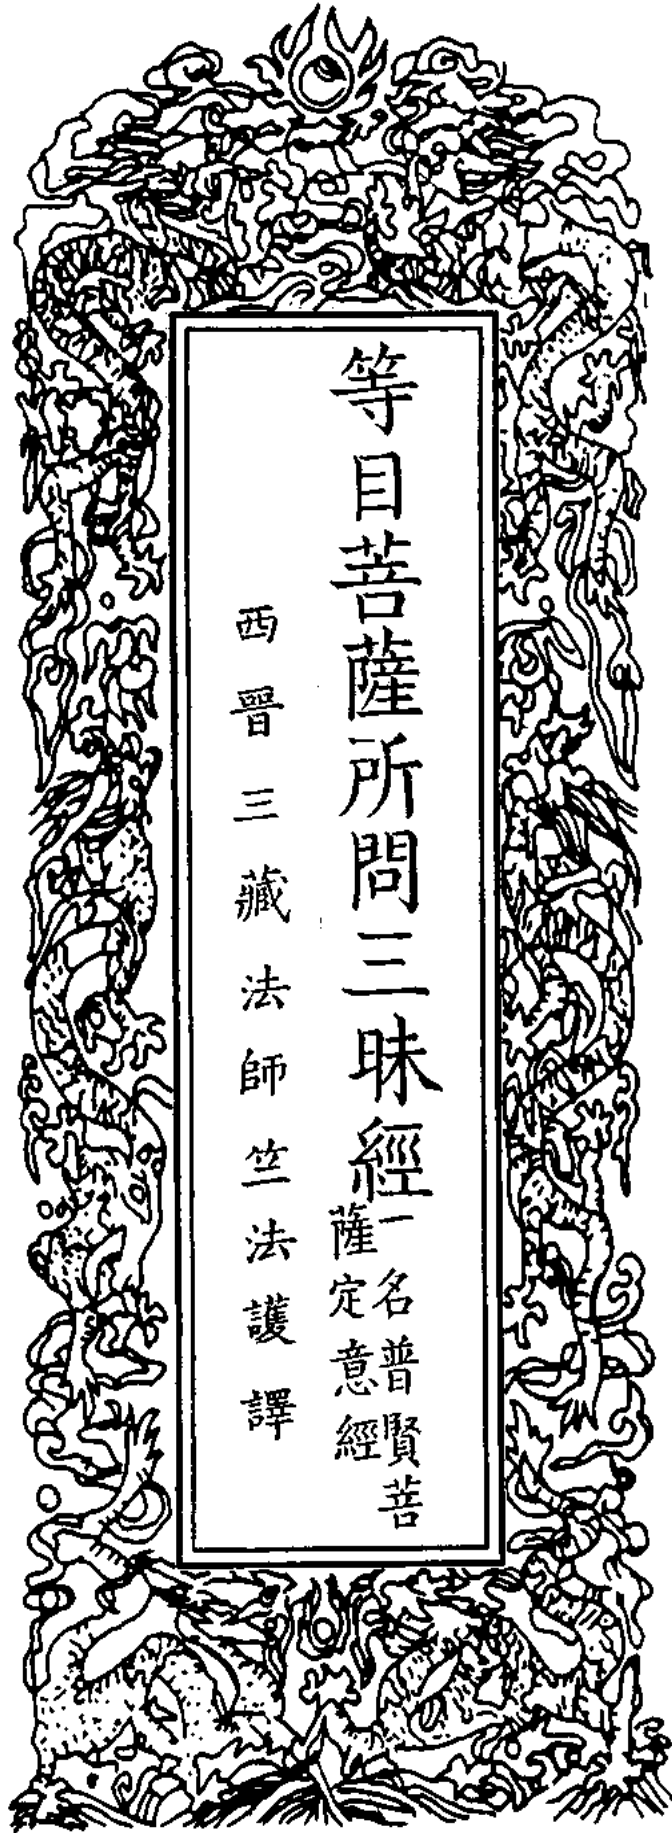 等目菩薩所問三昧經
一名普賢菩
薩定意經
西晉三藏法師竺法護譯